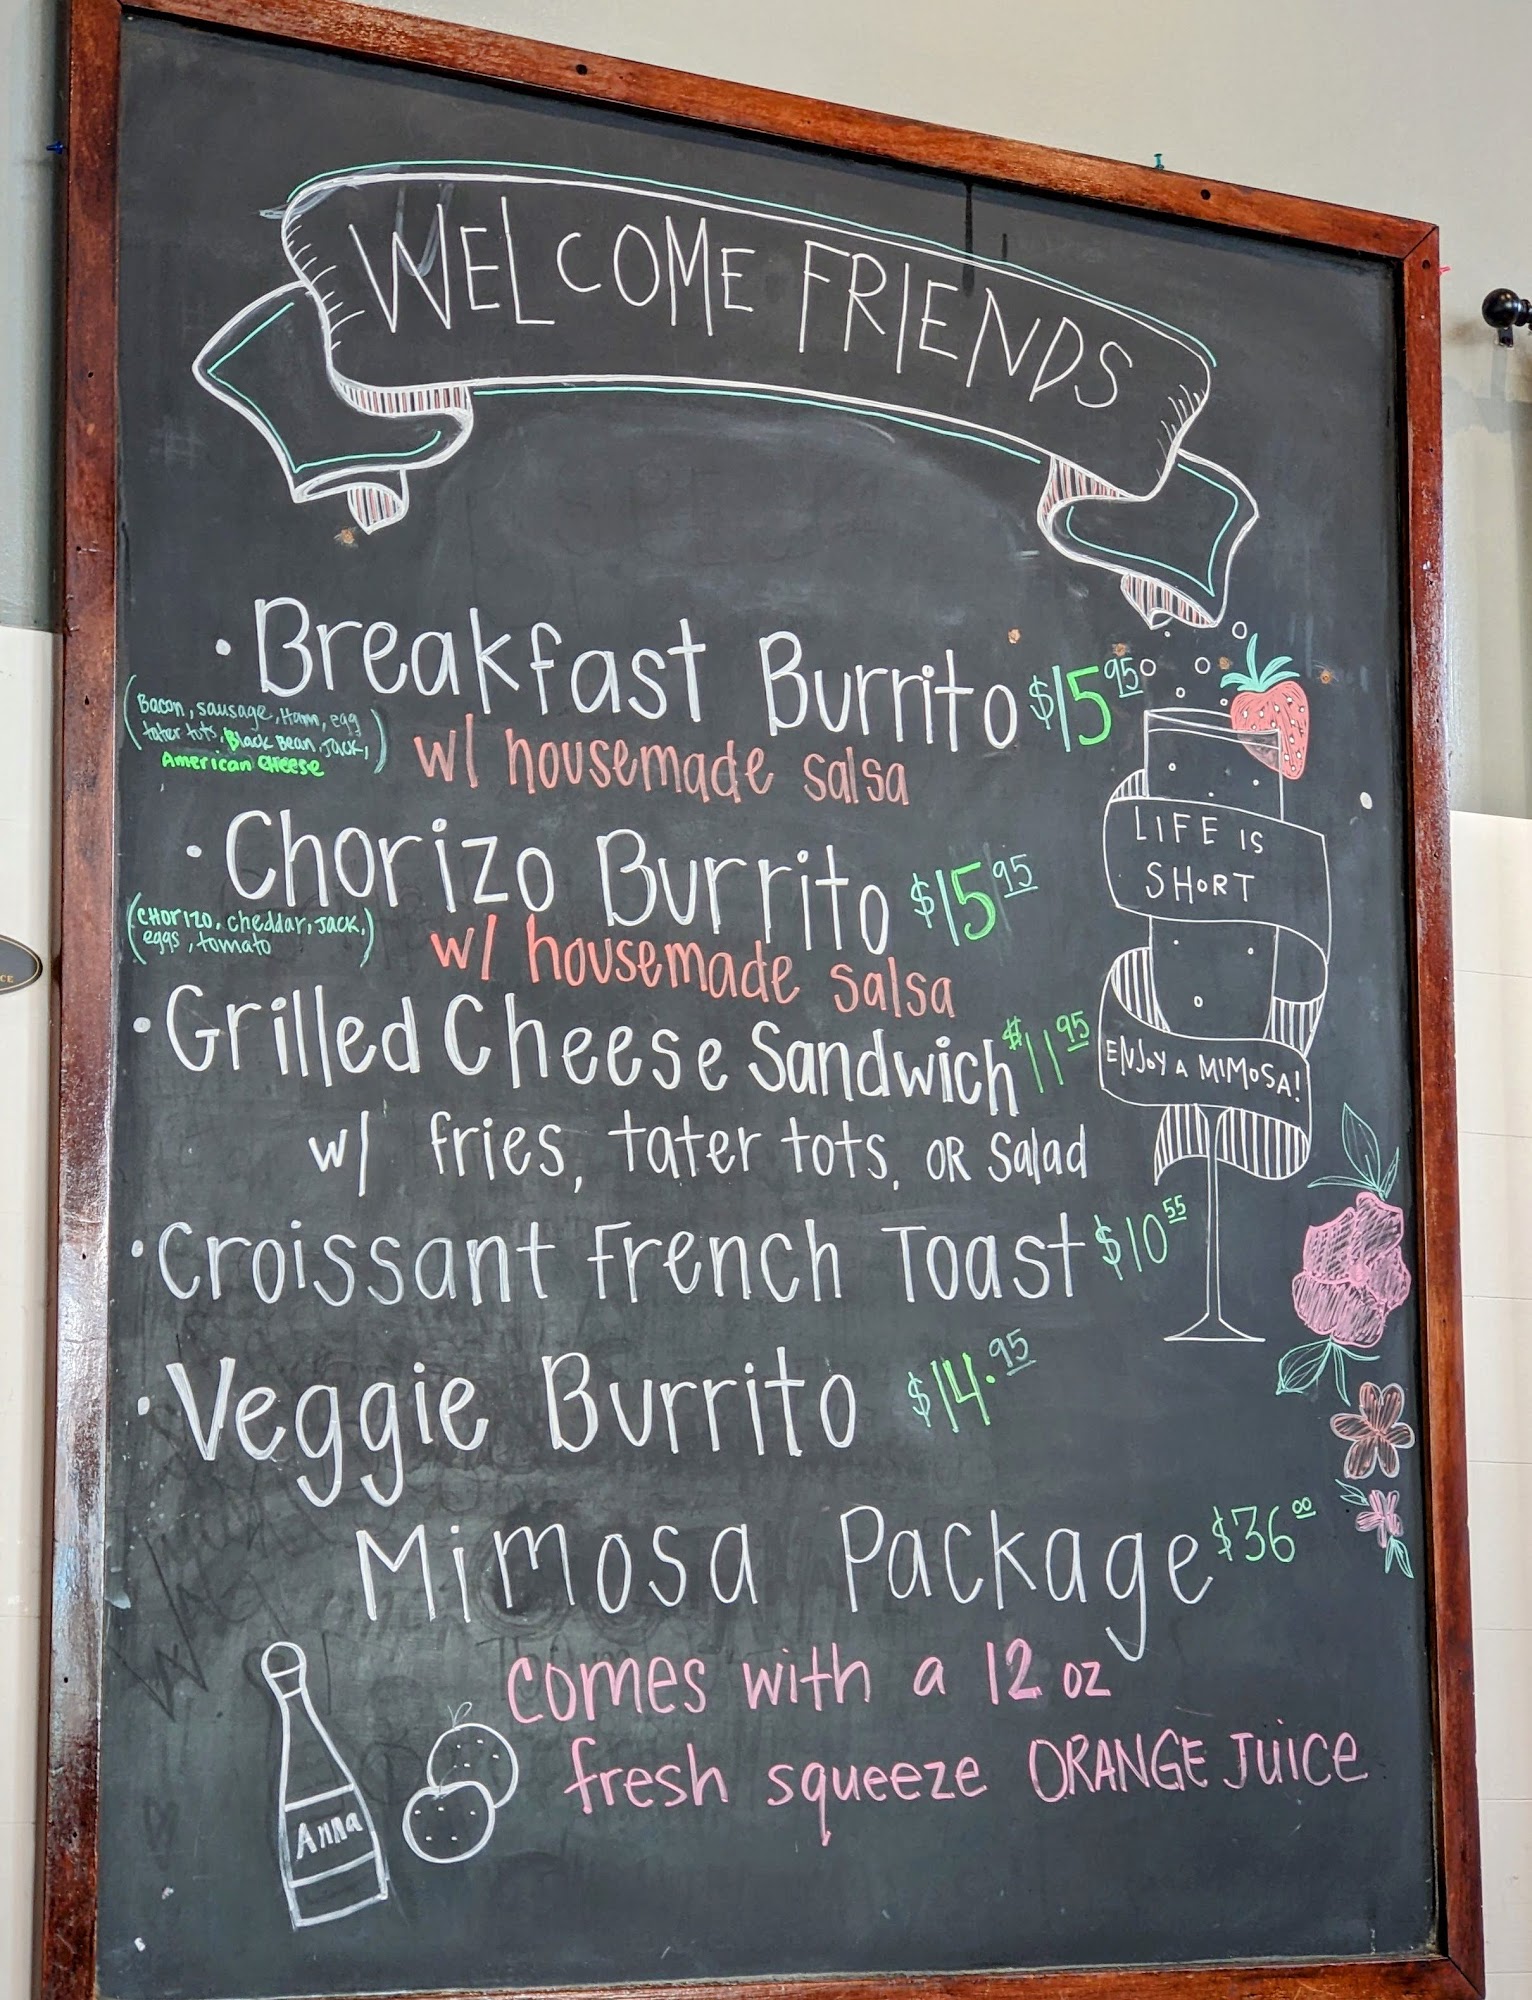 WELCOME FRIENDS
• Breakfast Burrito $15.95
(Bacon, sausage, Ham, egg
tater tots, Black Bean, Jack,
American cheese)
w/ housemade salsa
• Chorizo Burrito $15.95
(Chorizo, cheddar, Jack,
eggs, tomato)
w/ housemade salsa
• Grilled Cheese Sandwich $11.95
w/ fries, tater tots, OR Salad
• Croissant French Toast $10.55
• Veggie Burrito $14.95
Mimosa Package $36.00
comes with a 12 oz
fresh squeeze ORANGE JUICE
LIFE IS
SHORT
ENJOY A MIMOSA!
Anna
CE